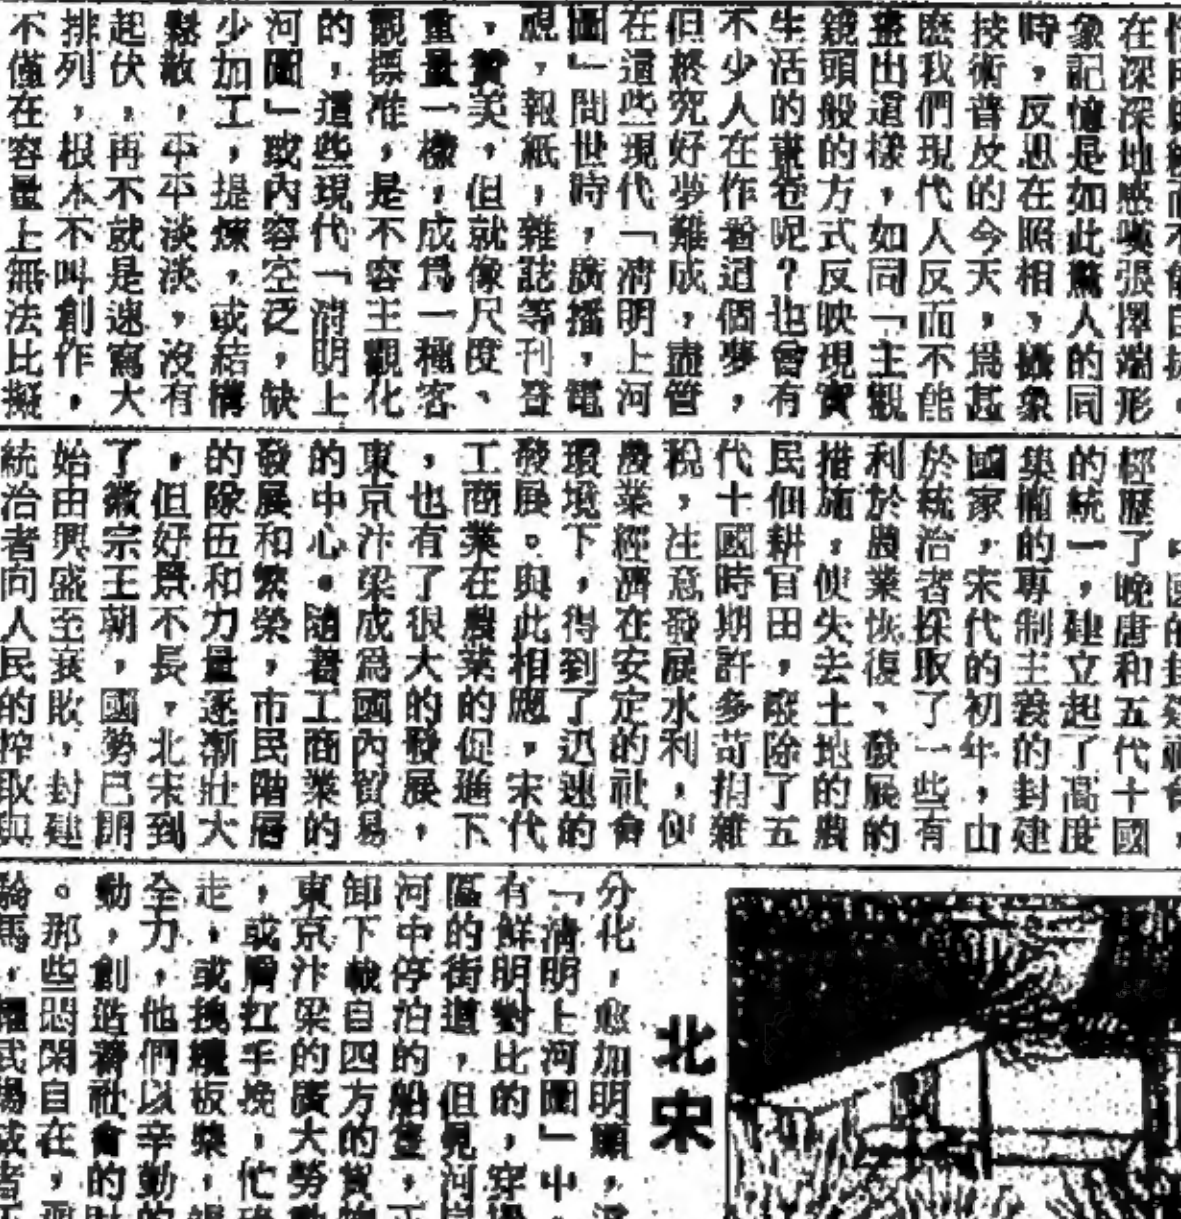 在深深地感嘆張擇端形
象記憶是如此驚人的同
時，反思在照相、攝象
技術普及的今天，爲甚
麽我們現代人反而不能
畫出這樣，如同「主觀
鏡頭般的方式反映現實
生活的畫卷呢？也會有
不少人在作着這個夢，
但終究好夢難成，盡管
在這些現代「清明上河
圖」問世時，廣播，電
視，報紙，雜誌等刊登
，贊美，但就像尺度、
重量一樣，成爲一種客
觀標准，是不容主觀化
的，這些現代「清明上
河圖」或內容空乏，缺
少加工，提煉，或結構
鬆散，平平淡淡，沒有
起伏，再不就是速寫大
排列，根本不叫創作，
不僅在容量上無法比擬
經歷了晚唐和五代十國
的統一，建立起了高度
集權的專制主義的封建
國家，宋代的初年，由
於統治者採取了一些有
利於農業恢復、發展的
措施，使失去土地的農
民佃耕官田，廢除了五
代十國時期許多苛捐雜
稅，注意發展水利，使
農業經濟在安定的社會
環境下，得到了迅速的
發展。與此相應，宋代
工商業在農業的促進下
，也有了很大的發展，
東京汴梁成爲國內貿易
的中心。隨着工商業的
發展和繁榮，市民階層
的隊伍和力量逐漸壯大
，但好景不長，北宋到
了徽宗王朝，國勢已開
始由興盛至衰敗，封建
統治者向人民的榨取與
北宋
分化，愈加明顯，
「清明上河圖」中，
有鮮明對比的，穿
區的街道，但見河
河中停泊的船隻，
卸下載自四方的貨物
東京汴梁的廣大勞動
，或肩扛手挽，忙
走，或挽纜板槳，
全力，他們以辛勤的
動，創造着社會的財
。那些悶閑自在，
騎馬，